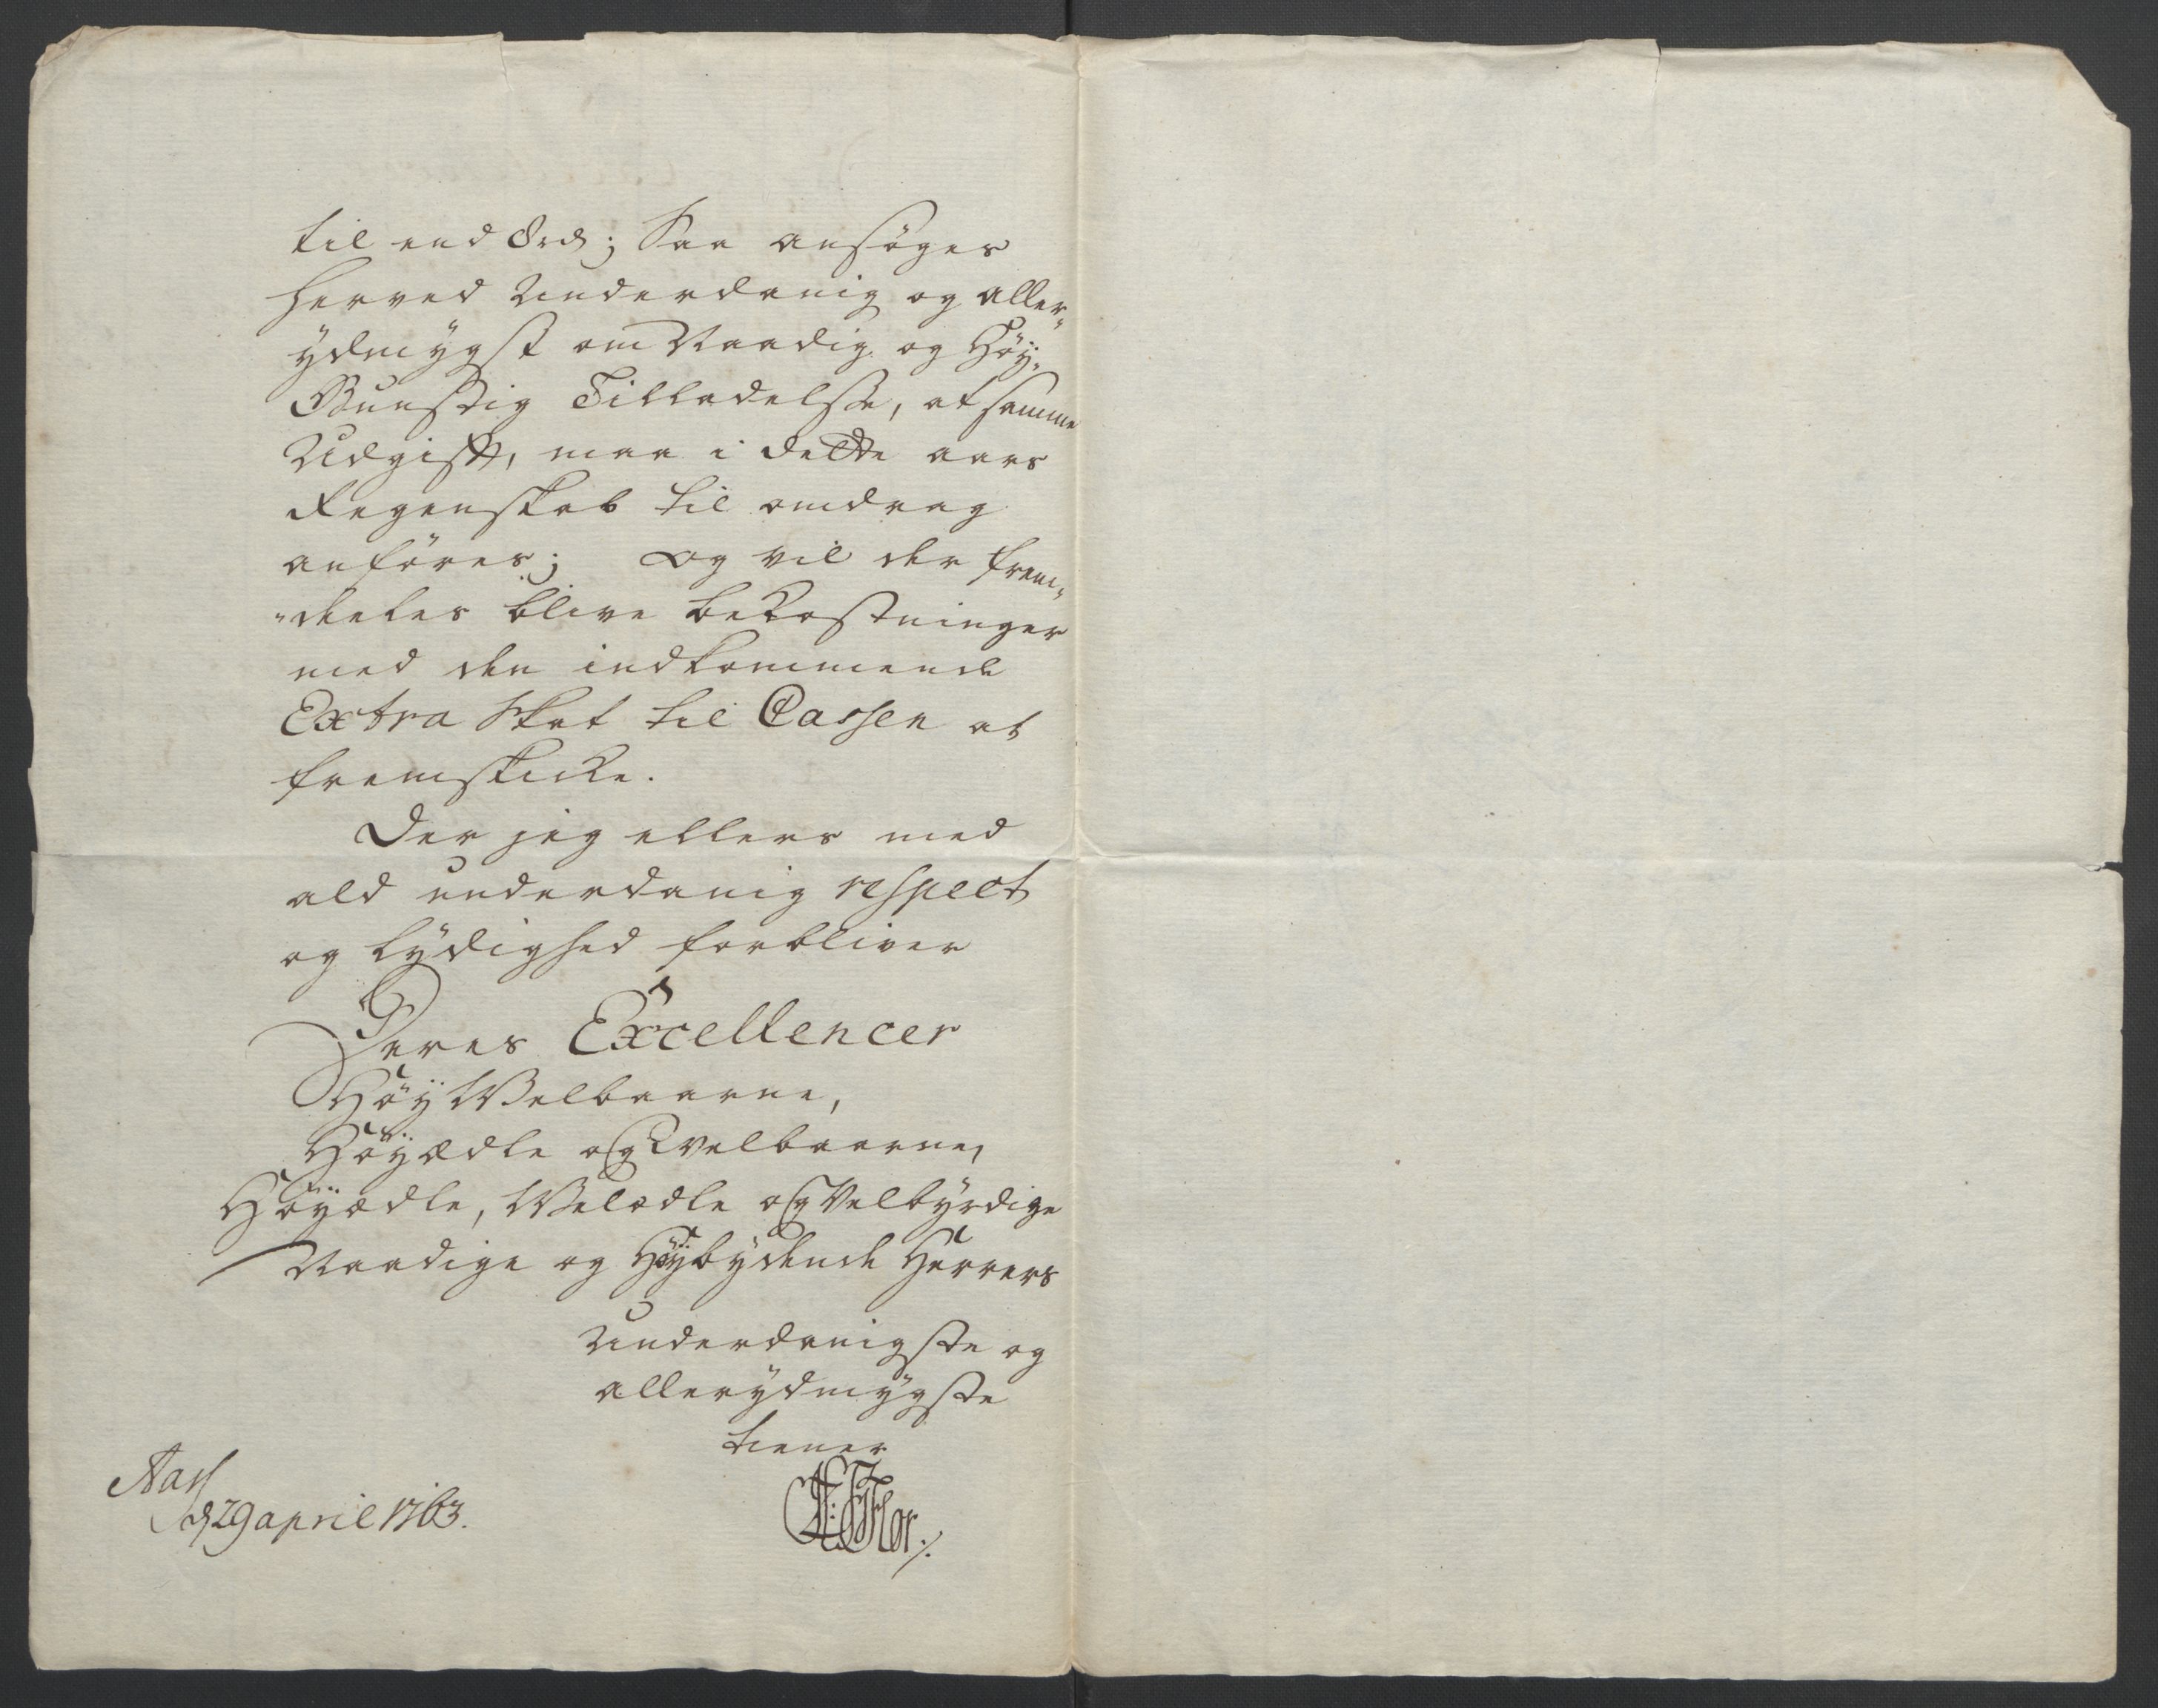 til end 8 rd; Saa ansøges
herved Underdanig og aller-
ydmygst om Naadig og Høy-
Gunstig Tilladelse, at samme
Udgift, maa i dette aars
Regenskab til omdrag
anføres; og vil der frem-
"deeles blive bekostninger
med den indkommende
Extra Skat til Cassen at
fremskicke.
Der jeg ellers med
ald underdanig respect
og lydighed forbliver
Deres Excellencer
Høy Welbaarne,
Høyædle og Velbaarne,
Høyædle, Welædle og Velbyrdige
Naadige og Høybydende Herrers
Underdanigste og
allerydmygste
tiener
Flor ./.
Aas
d 29 april 1763.